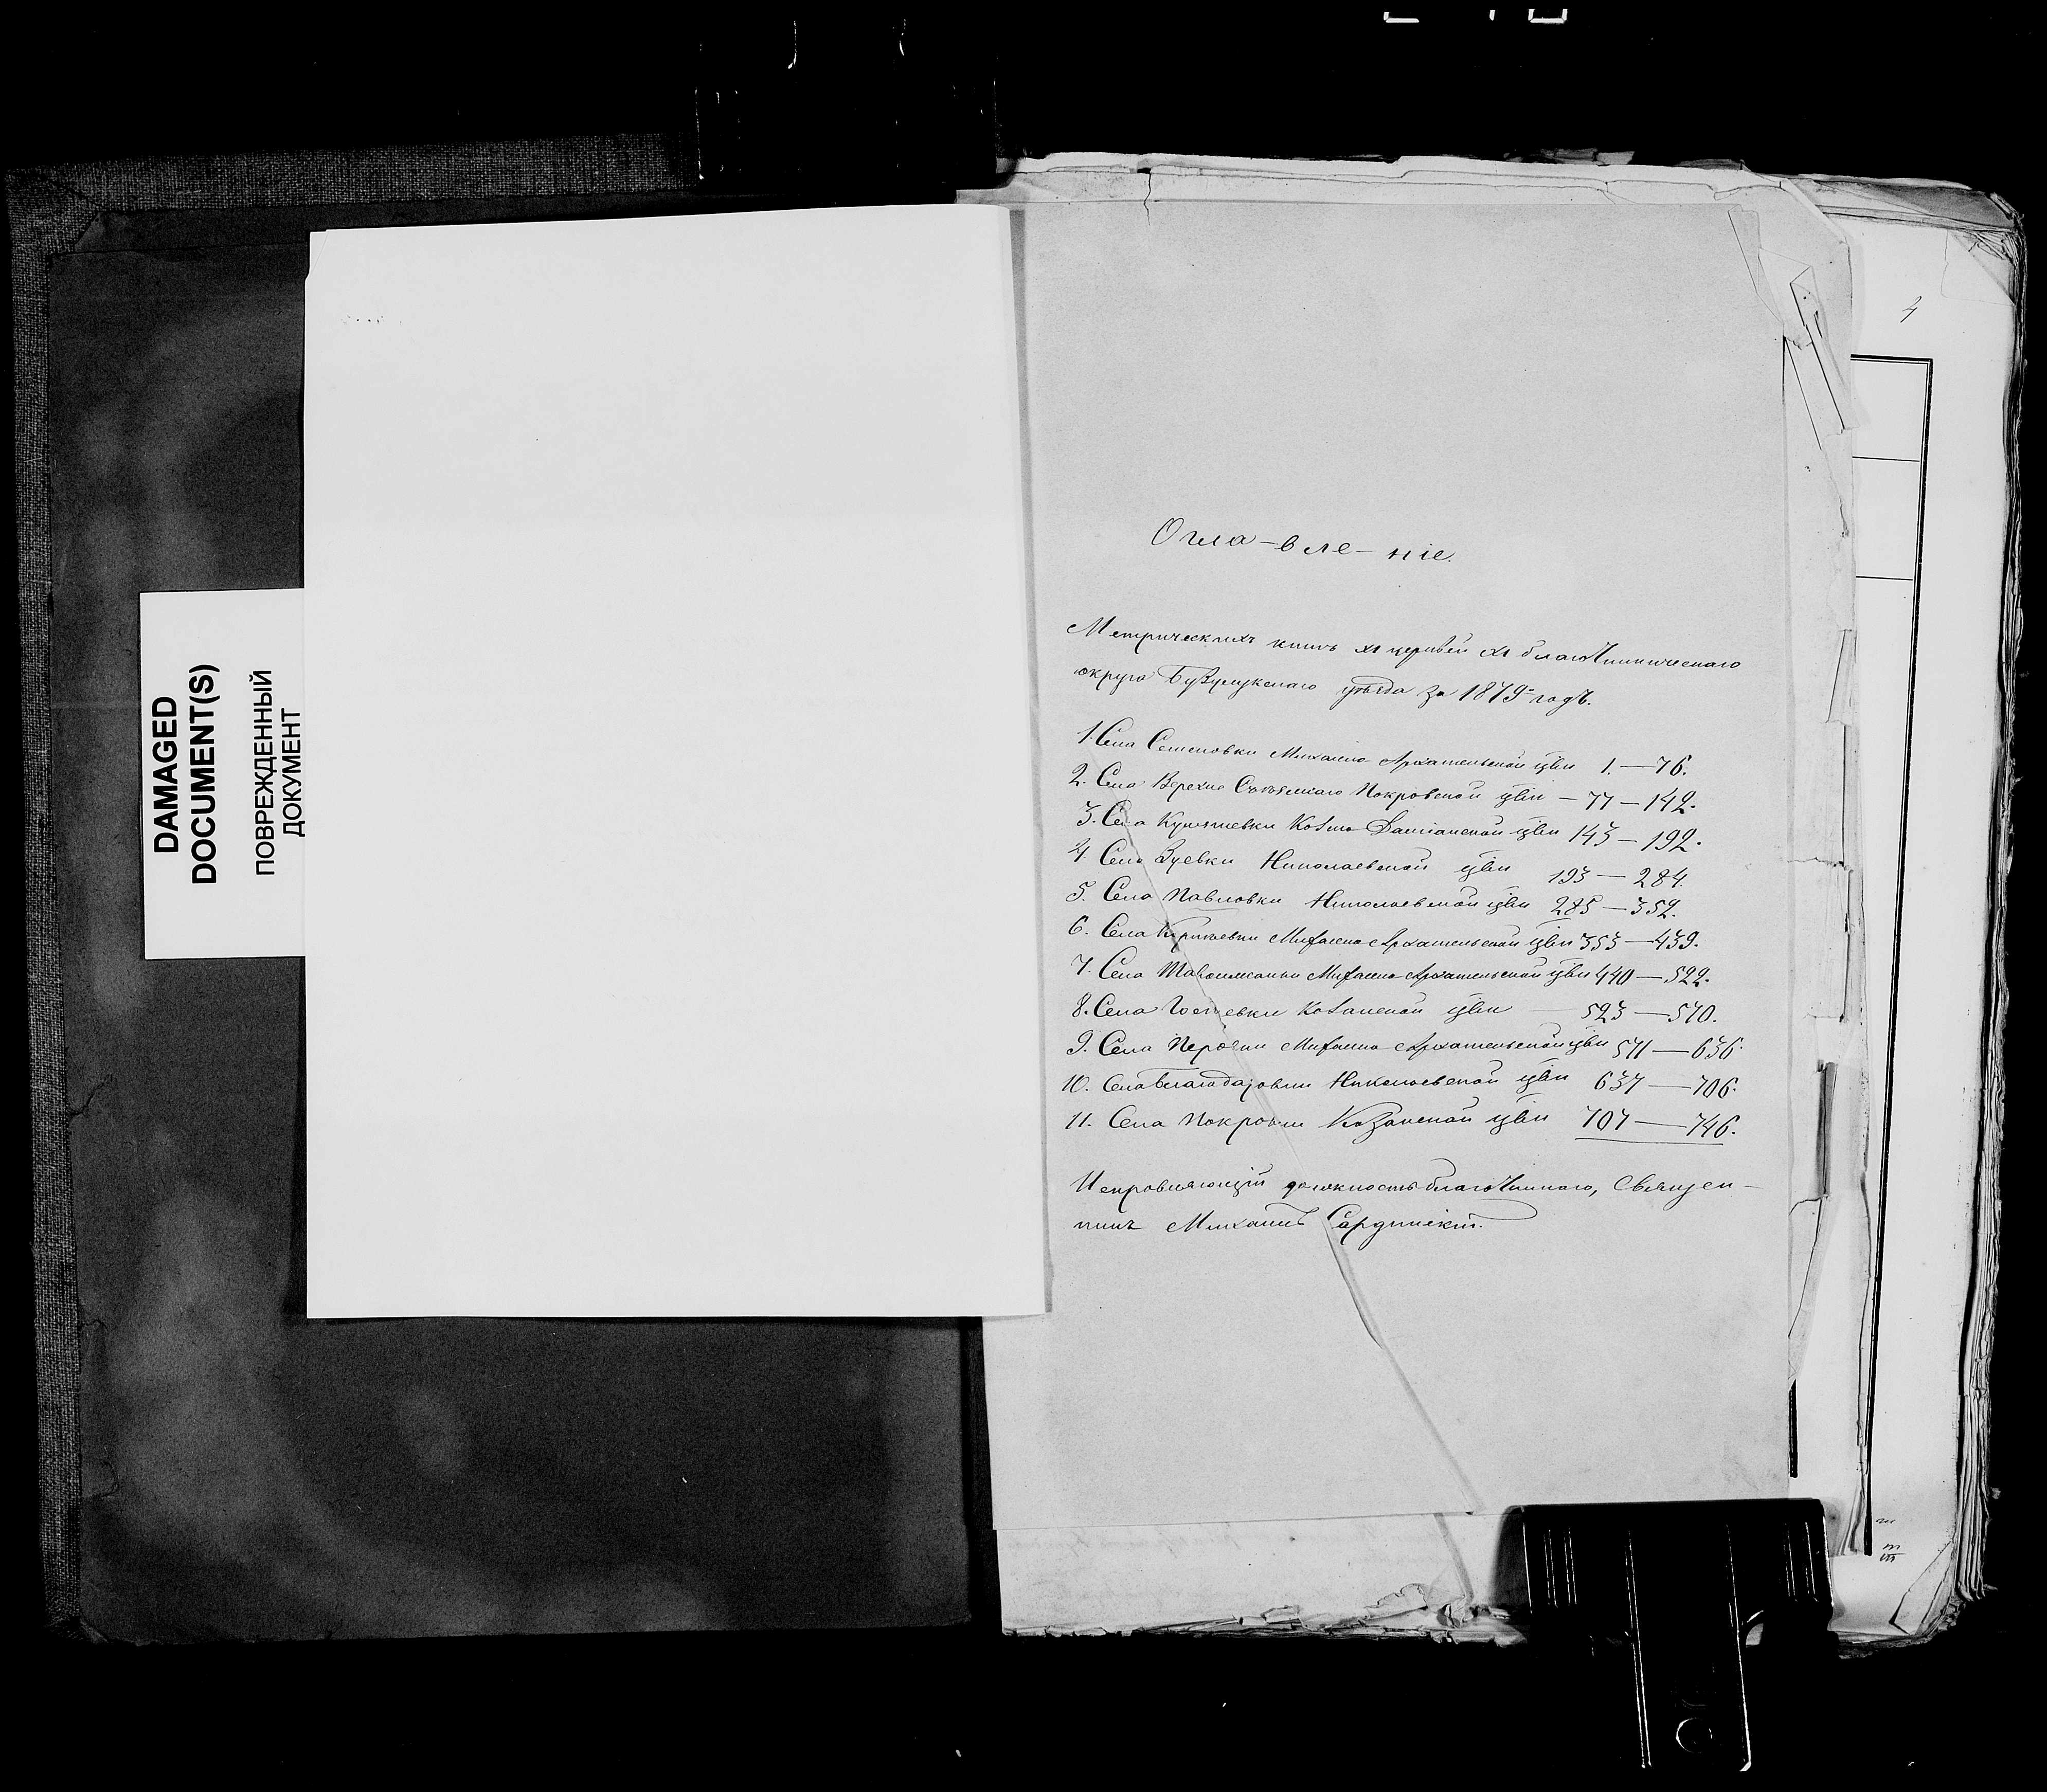 DAMAGED
DOCUMENT(S)
ПОВРЕЖДЕННЫЙ
ДОКУМЕНТ
4
Огла-вле-ніе.
Метрическихъ книгъ XI церквей XI благочинническаго
округа Бузулукскаго уѣзда за 1879 годъ.
1. Села Семеновки Михаило Архангельской цвки 1.—76.
2. Села Верхне Съѣзжаго Покровской цвки — 77—142.
3. Села Кулешевки Козмо Даміанской цвки 143—192.
4. Села Зуевки Николаевской цвки 193—284.
5. Села Павловки Николаевской цвки 285—352.
6. Села Михаило Архангельской цвки 353—439.
7. Села Михаило Архангельской цвки 440—522.
8. Села Гостевки Козанской цвки — 523—570.
9. Села Перовки Михаило Архангельской цвки 571—636.
10. Села Благодаровки Николаевской цвки 637—706.
11. Села Покровки Козанской цвки 707—746.
Исправляющій должность благочиннаго, Священ-
никъ Михаилъ